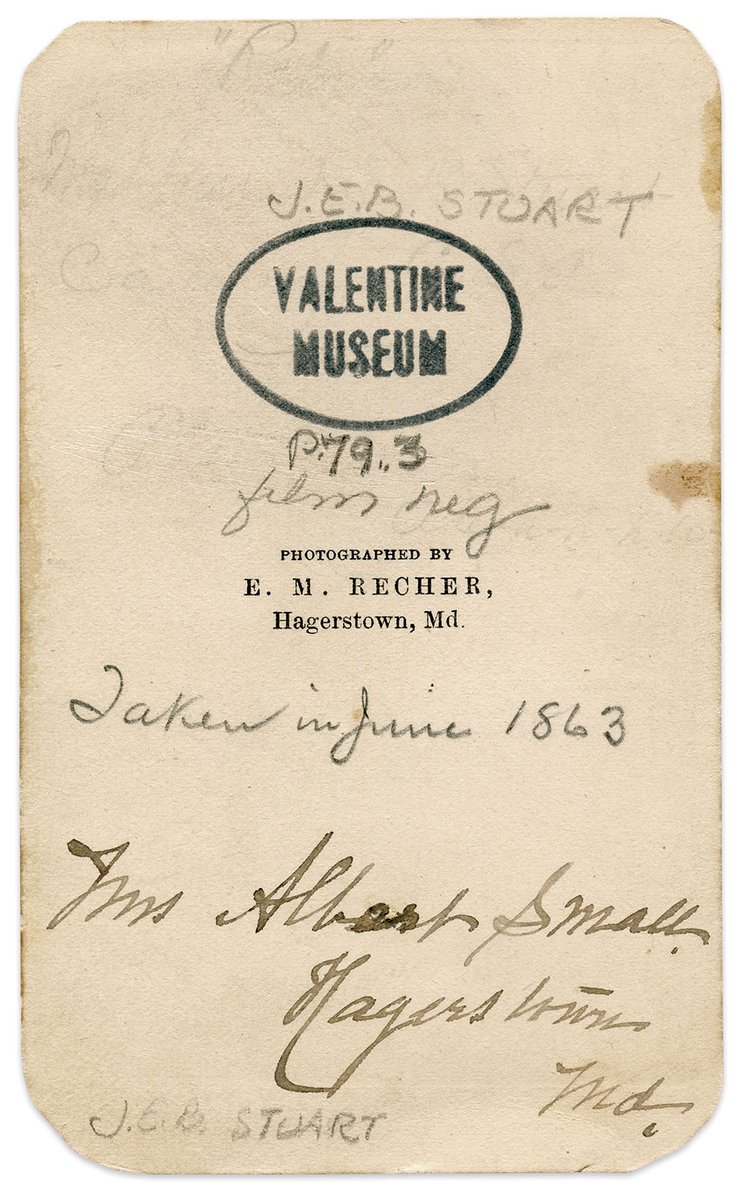 J.E.B. STUART
VALENTINE
MUSEUM
P.79.3
film neg
PHOTOGRAPHED BY
E. M. RECHER,
Hagerstown, Md.
Taken in June 1863
Mrs Albert Small.
Hagerstown
Md.
J.E.B. STUART